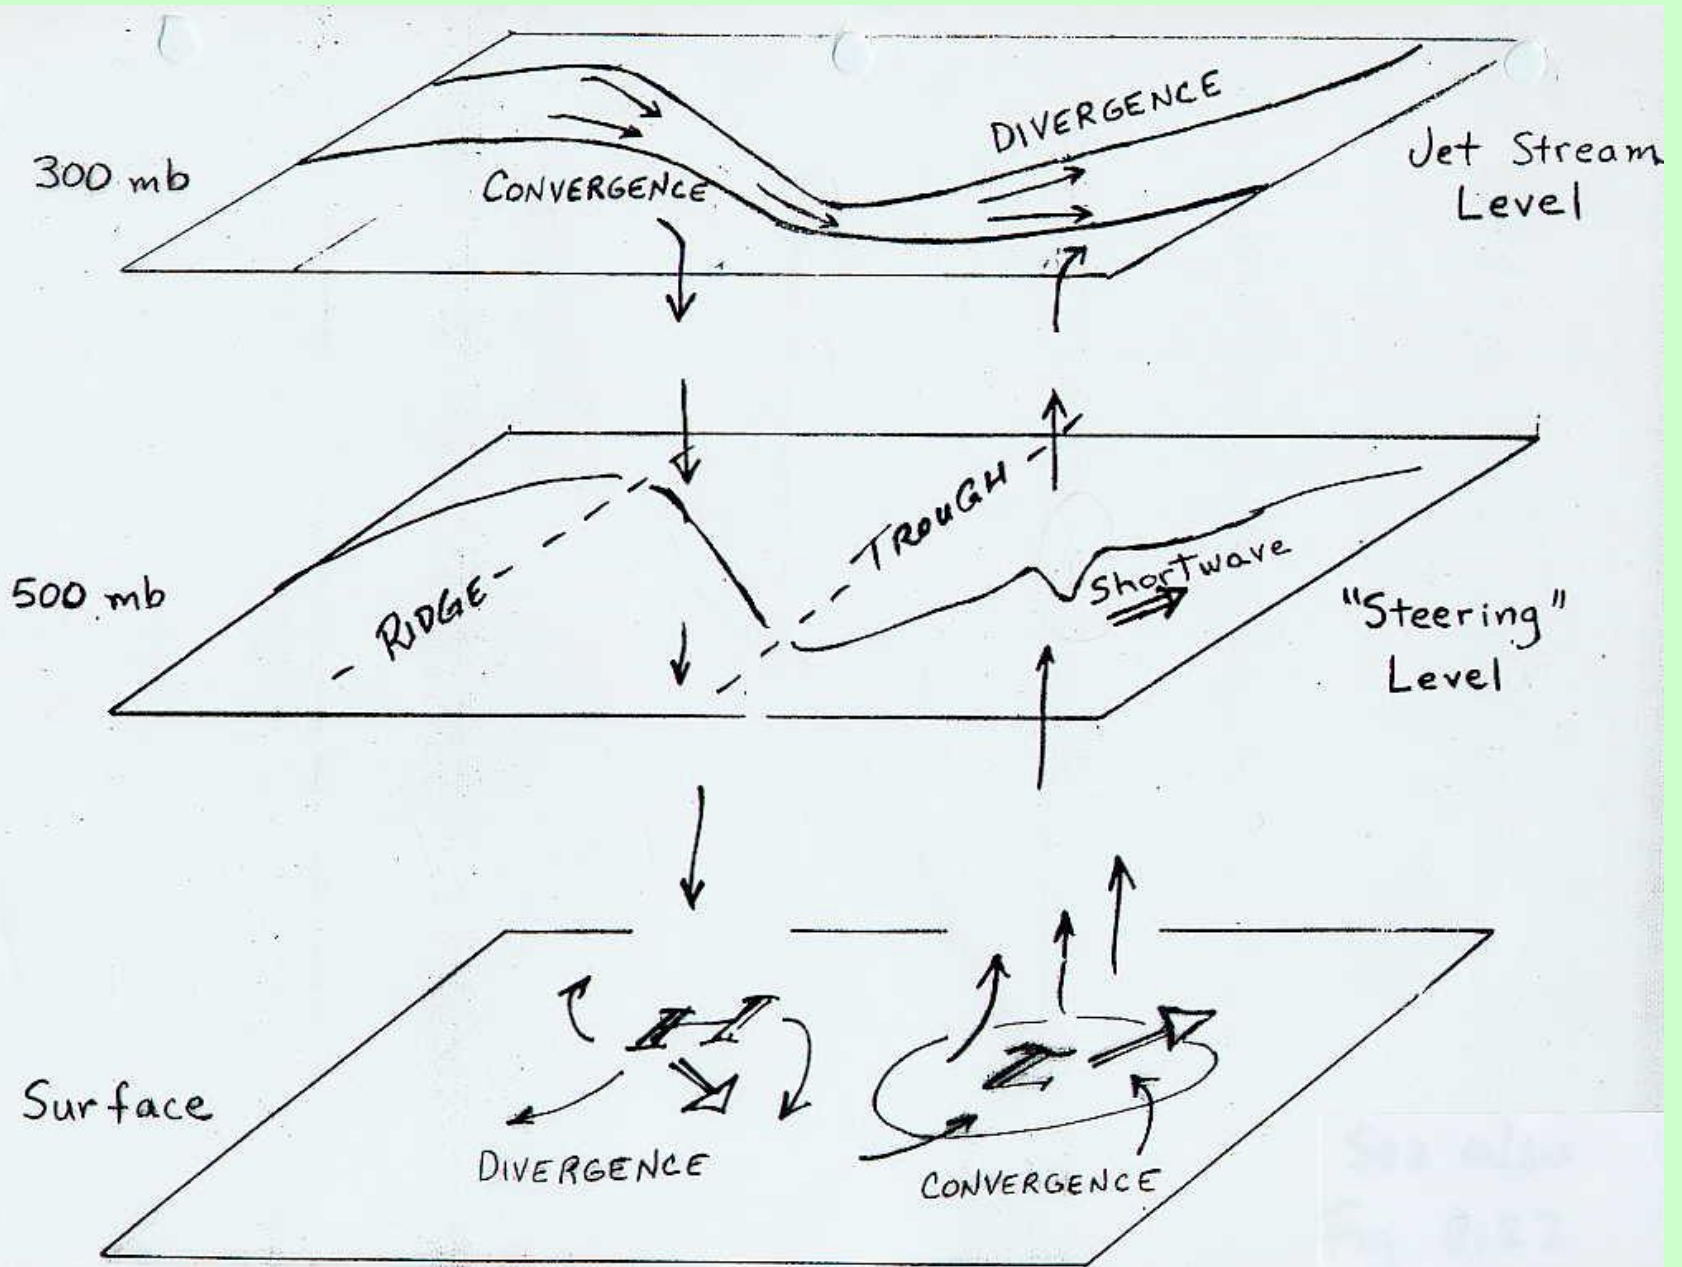 300 mb
CONVERGENCE
DIVERGENCE
Jet Stream
Level
500 mb
RIDGE
TROUGH
Shortwave
"Steering"
Level
Surface
H
L
DIVERGENCE
CONVERGENCE
See also